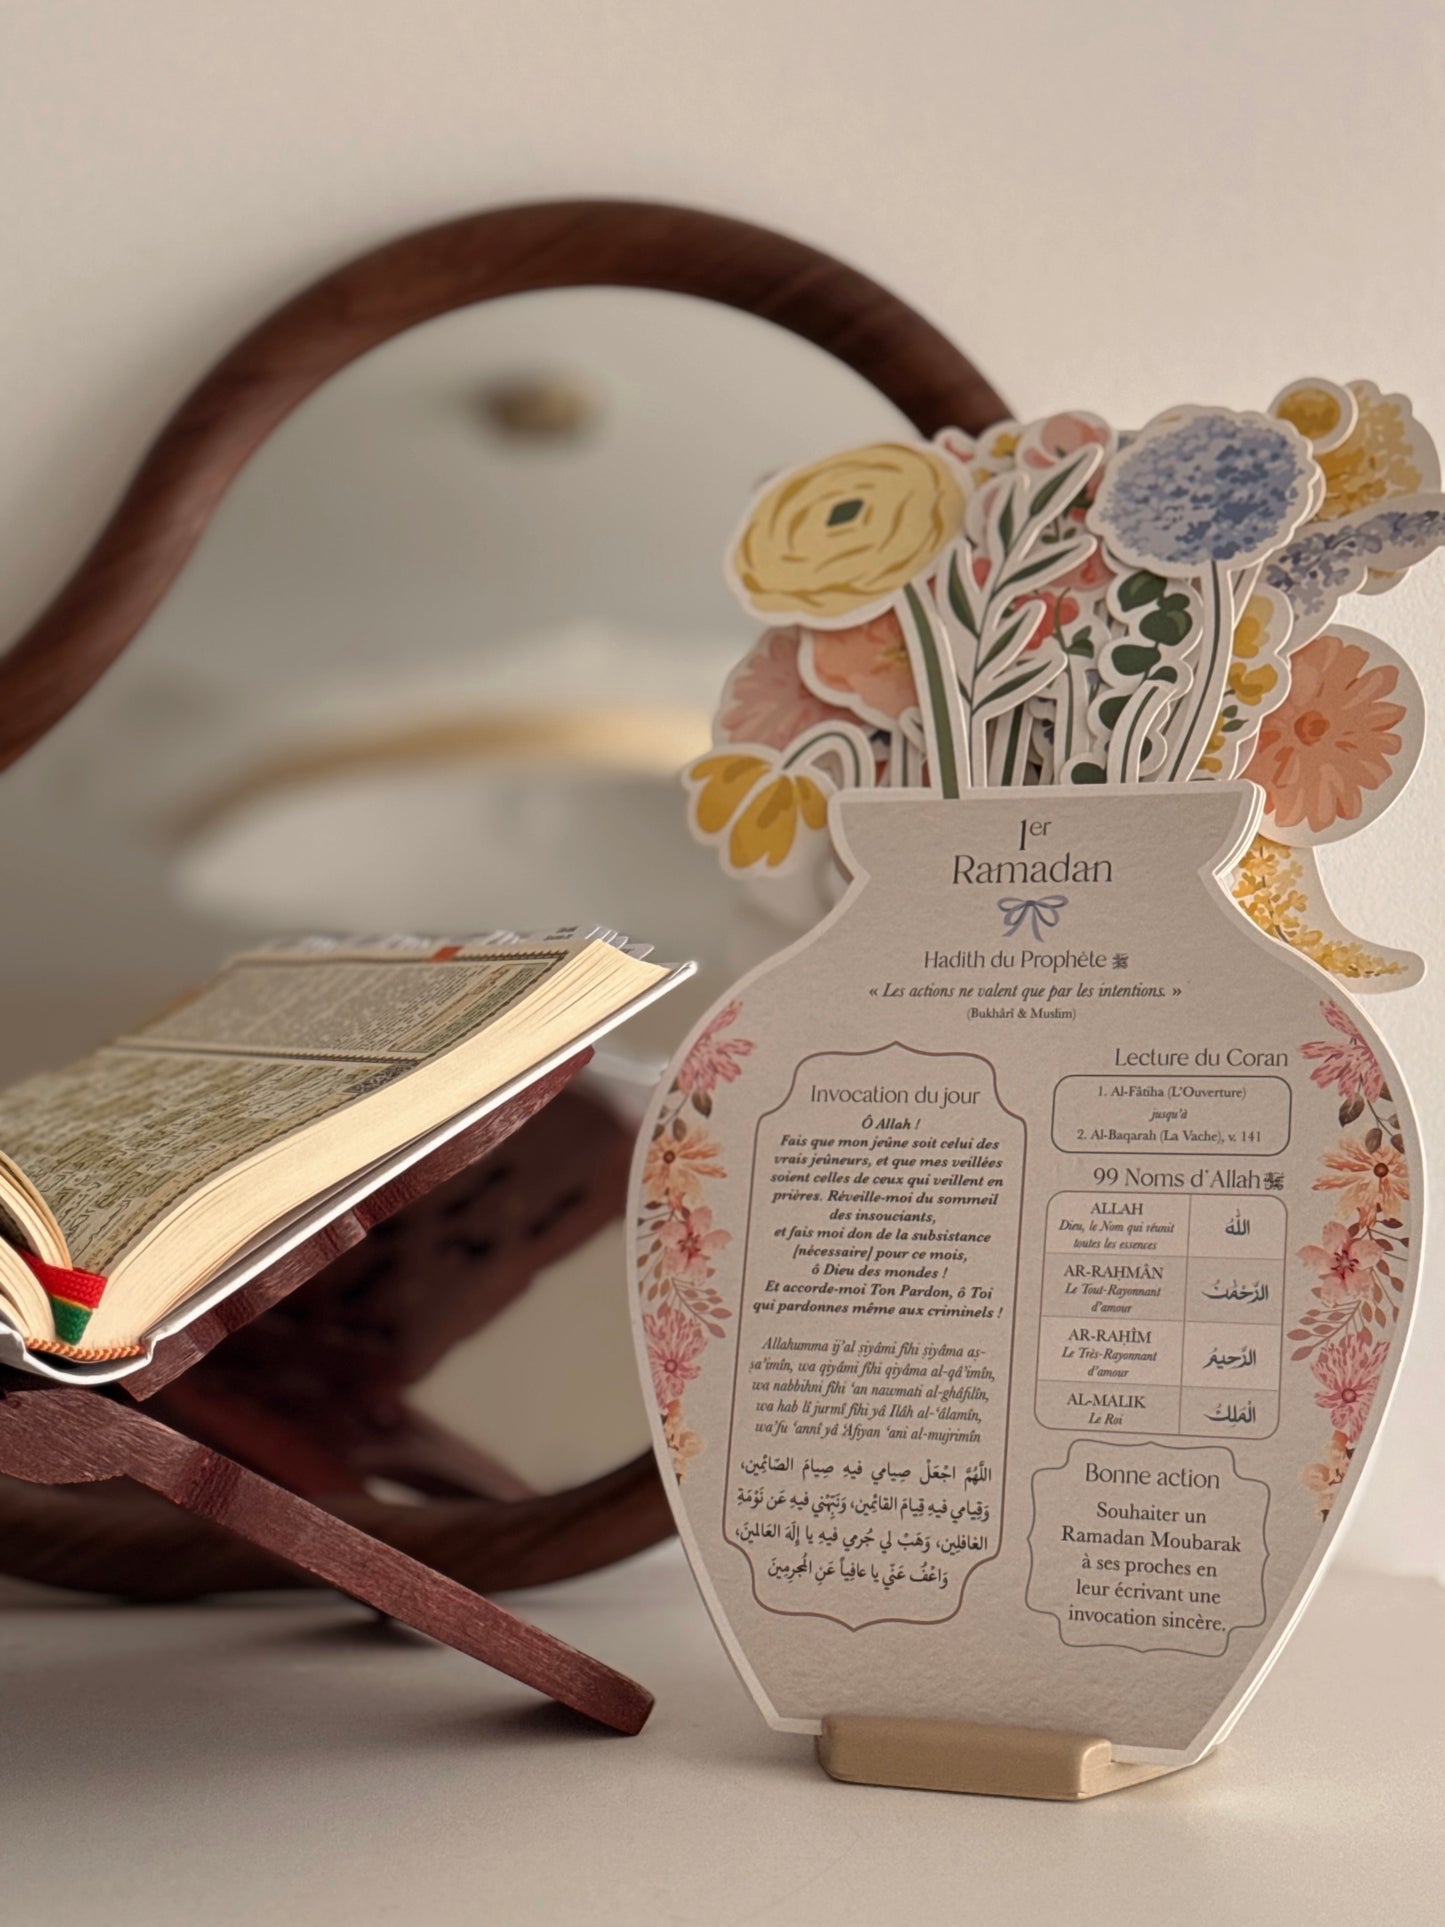 1er
Ramadan
Hadith du Prophète ﷺ
« Les actions ne valent que par les intentions. »
(Bukhârî & Muslim)
Invocation du jour
Ô Allah !
Fais que mon jeûne soit celui des
vrais jeûneurs, et que mes veillées
soient celles de ceux qui veillent en
prières. Réveille-moi du sommeil
des insouciants,
et fais moi don de la subsistance
[nécessaire] pour ce mois,
ô Dieu des mondes !
Et accorde-moi Ton Pardon, ô Toi
qui pardonnes même aux criminels !
Allahumma ij'al ṣiyâmi fîhi ṣiyâma aṣ-
ṣa'imîn, wa qiyâmi fîhi qiyâma al-qâ'imîn,
wa nabbihni fîhi 'an nawmati al-ghâfilîn,
wa hab lî jurmî fîhi yâ Ilâh al-'âlamîn,
wa'fu 'annî yâ 'Afiyan 'ani al-mujrimîn
اللَّهُمَّ اجْعَلْ صِيامي فيهِ صِيامَ الصّائِمين،
وَقِيامي فيهِ قِيامَ القائِمين، وَنَبِّهْني فيهِ عَن نَوْمَةِ
الغافِلين، وَهَبْ لي جُرمي فيهِ يا إِلَهَ العَالمينَ،
وَاعْفُ عَنّي يا عافِياً عَنِ المُجرِمينَ
Lecture du Coran
1. Al-Fâtiha (L'Ouverture)
jusqu'à
2. Al-Baqarah (La Vache), v. 141
99 Noms d'Allah ﷻ
ALLAH
Dieu, le Nom qui réunit
toutes les essences
اللَّهُ
AR-RAḤMÂN
Le Tout-Rayonnant
d'amour
الرَّحْمَٰنُ
AR-RAḤÎM
Le Très-Rayonnant
d'amour
الرَّحِيمُ
AL-MALIK
Le Roi
الْمَلِكُ
Bonne action
Souhaiter un
Ramadan Moubarak
à ses proches en
leur écrivant une
invocation sincère.